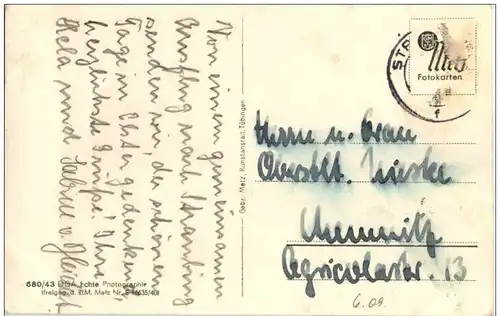 Von einem gemeinsamen
Ausflug nach Straubing
senden wir, der schönen
Tage in Elster gedenkend,
herzlichste Grüße! Ihre
Hela und
680/43 Echte Photographie
(freigeg. d. RLM. Metz Nr.
Gebr. Metz, Kunstanstalt, Tübingen
STR
Metz
Fotokarten
f
Herrn u. Frau
Oberstlt.
Chemnitz
Agricolastr. 13
6.09.